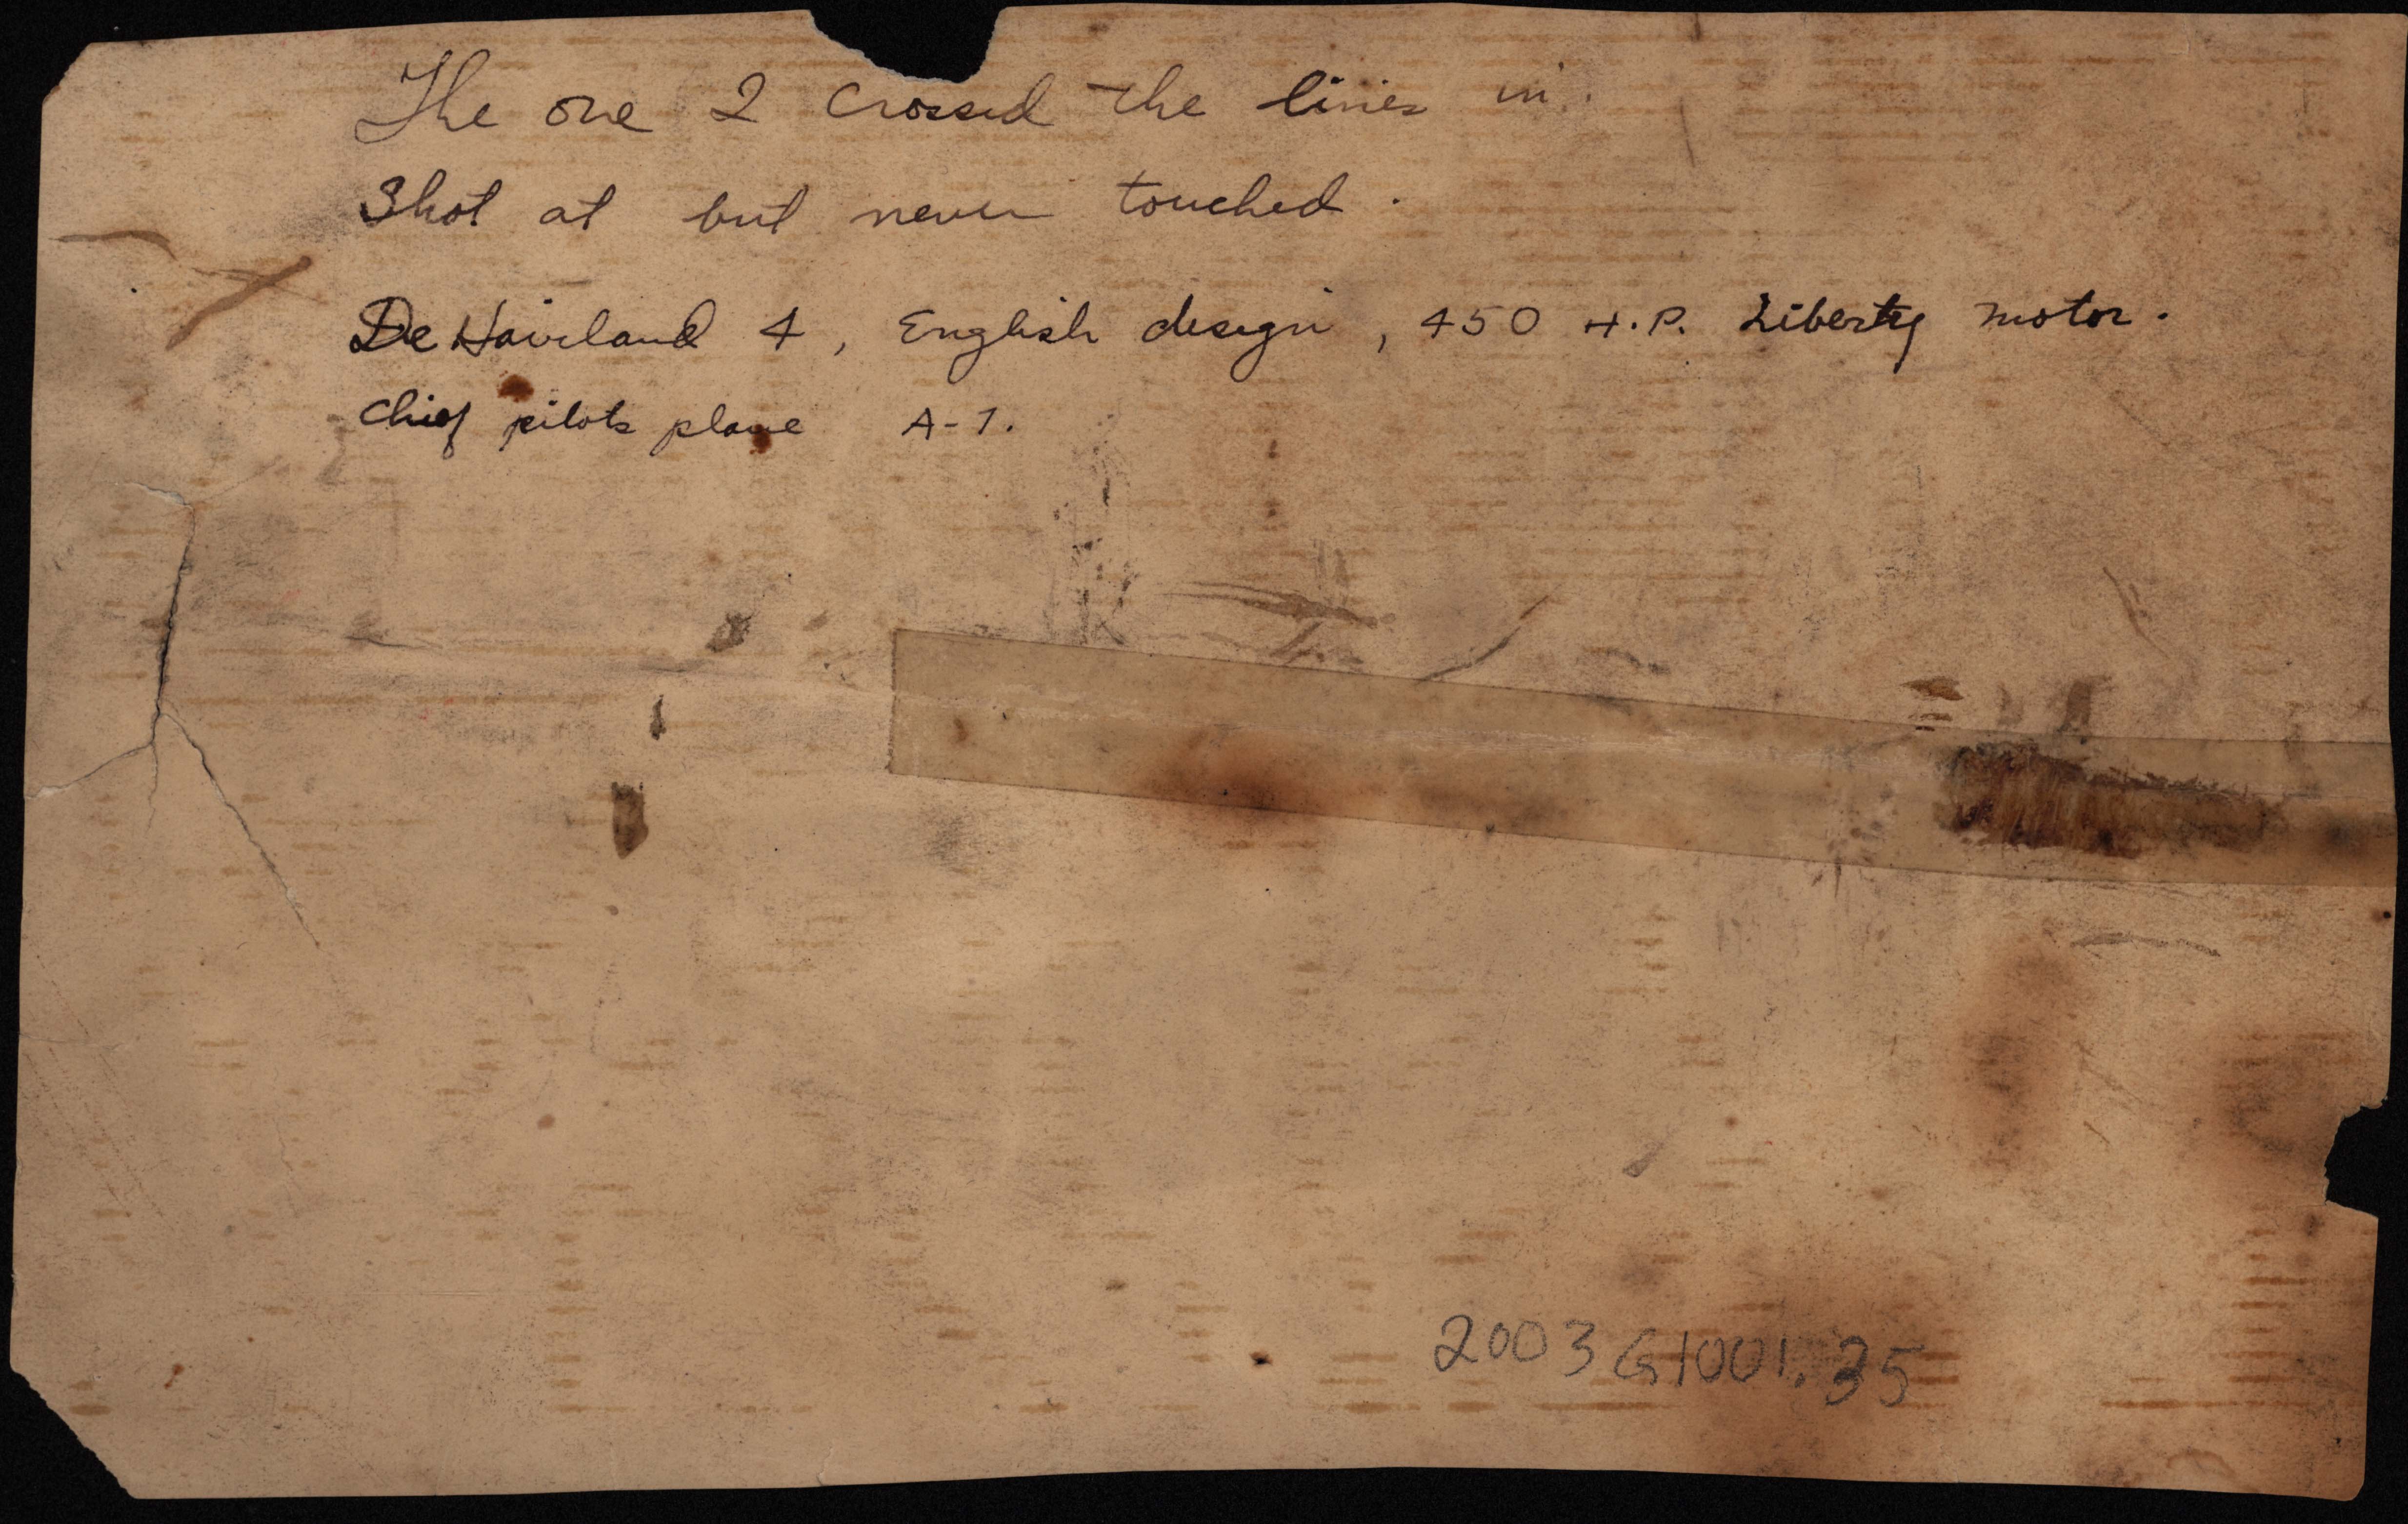 The one I crossed the lines in.
Shot at but never touched.
De Haviland 4, English design, 450 H.P. Liberty motor.
Chief pilots plane A-1.
2003 G1001.35